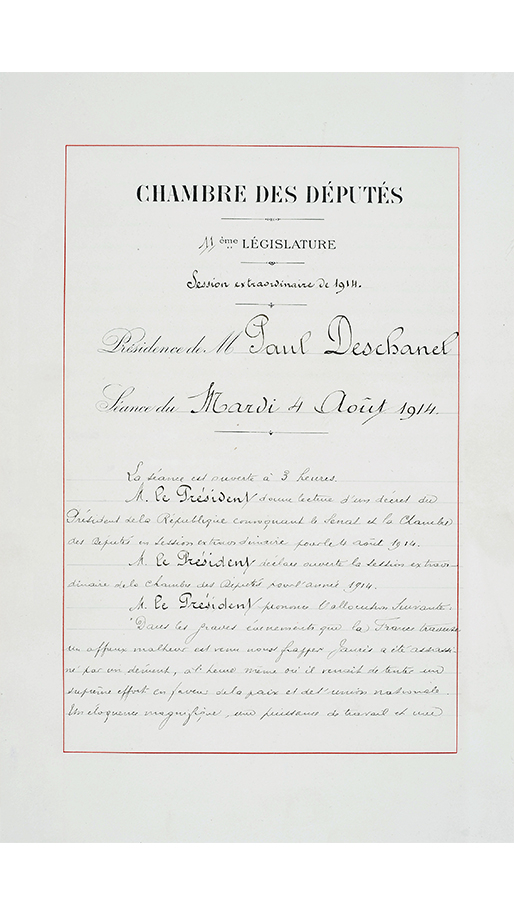 CHAMBRE DES DÉPUTÉS
11 ème LÉGISLATURE
Session extraordinaire de 1914.
Présidence de M Paul Deschanel
Séance du Mardi 4 Août 1914.
La séance est ouverte à 3 heures.
M. le Président donne lecture d'un décret du
Président de la République convoquant le Sénat et la Chambre
des Députés en session extraordinaire pour le 4 août 1914.
M. le Président déclare ouverte la session extraor-
dinaire de la Chambre des Députés pour l'année 1914.
M. le Président prononce l'allocution suivante:
"Dans les graves événements que la France traverse
un affreux malheur est venu nous frapper Jaurès a été assassi-
né par un dément, à l'heure même où il venait de tenter un
suprême effort en faveur de la paix et de l'union nationale.
Une éloquence magnifique, une puissance de travail et une